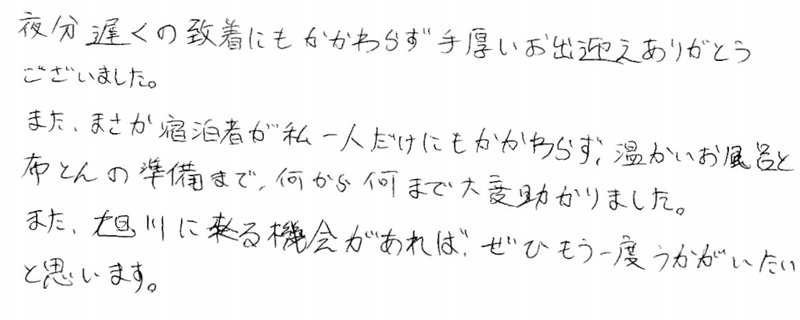 夜分遅くの致着にもかかわらず手厚いお出迎えありがとう
ございました。
また、まさか宿泊者が私一人だけにもかかわらず、温かいお風呂と
布とんの準備まで、何から何まで大変助かりました。
また、旭川に来る機会があれば、ぜひもう一度うかがいたい
と思います。